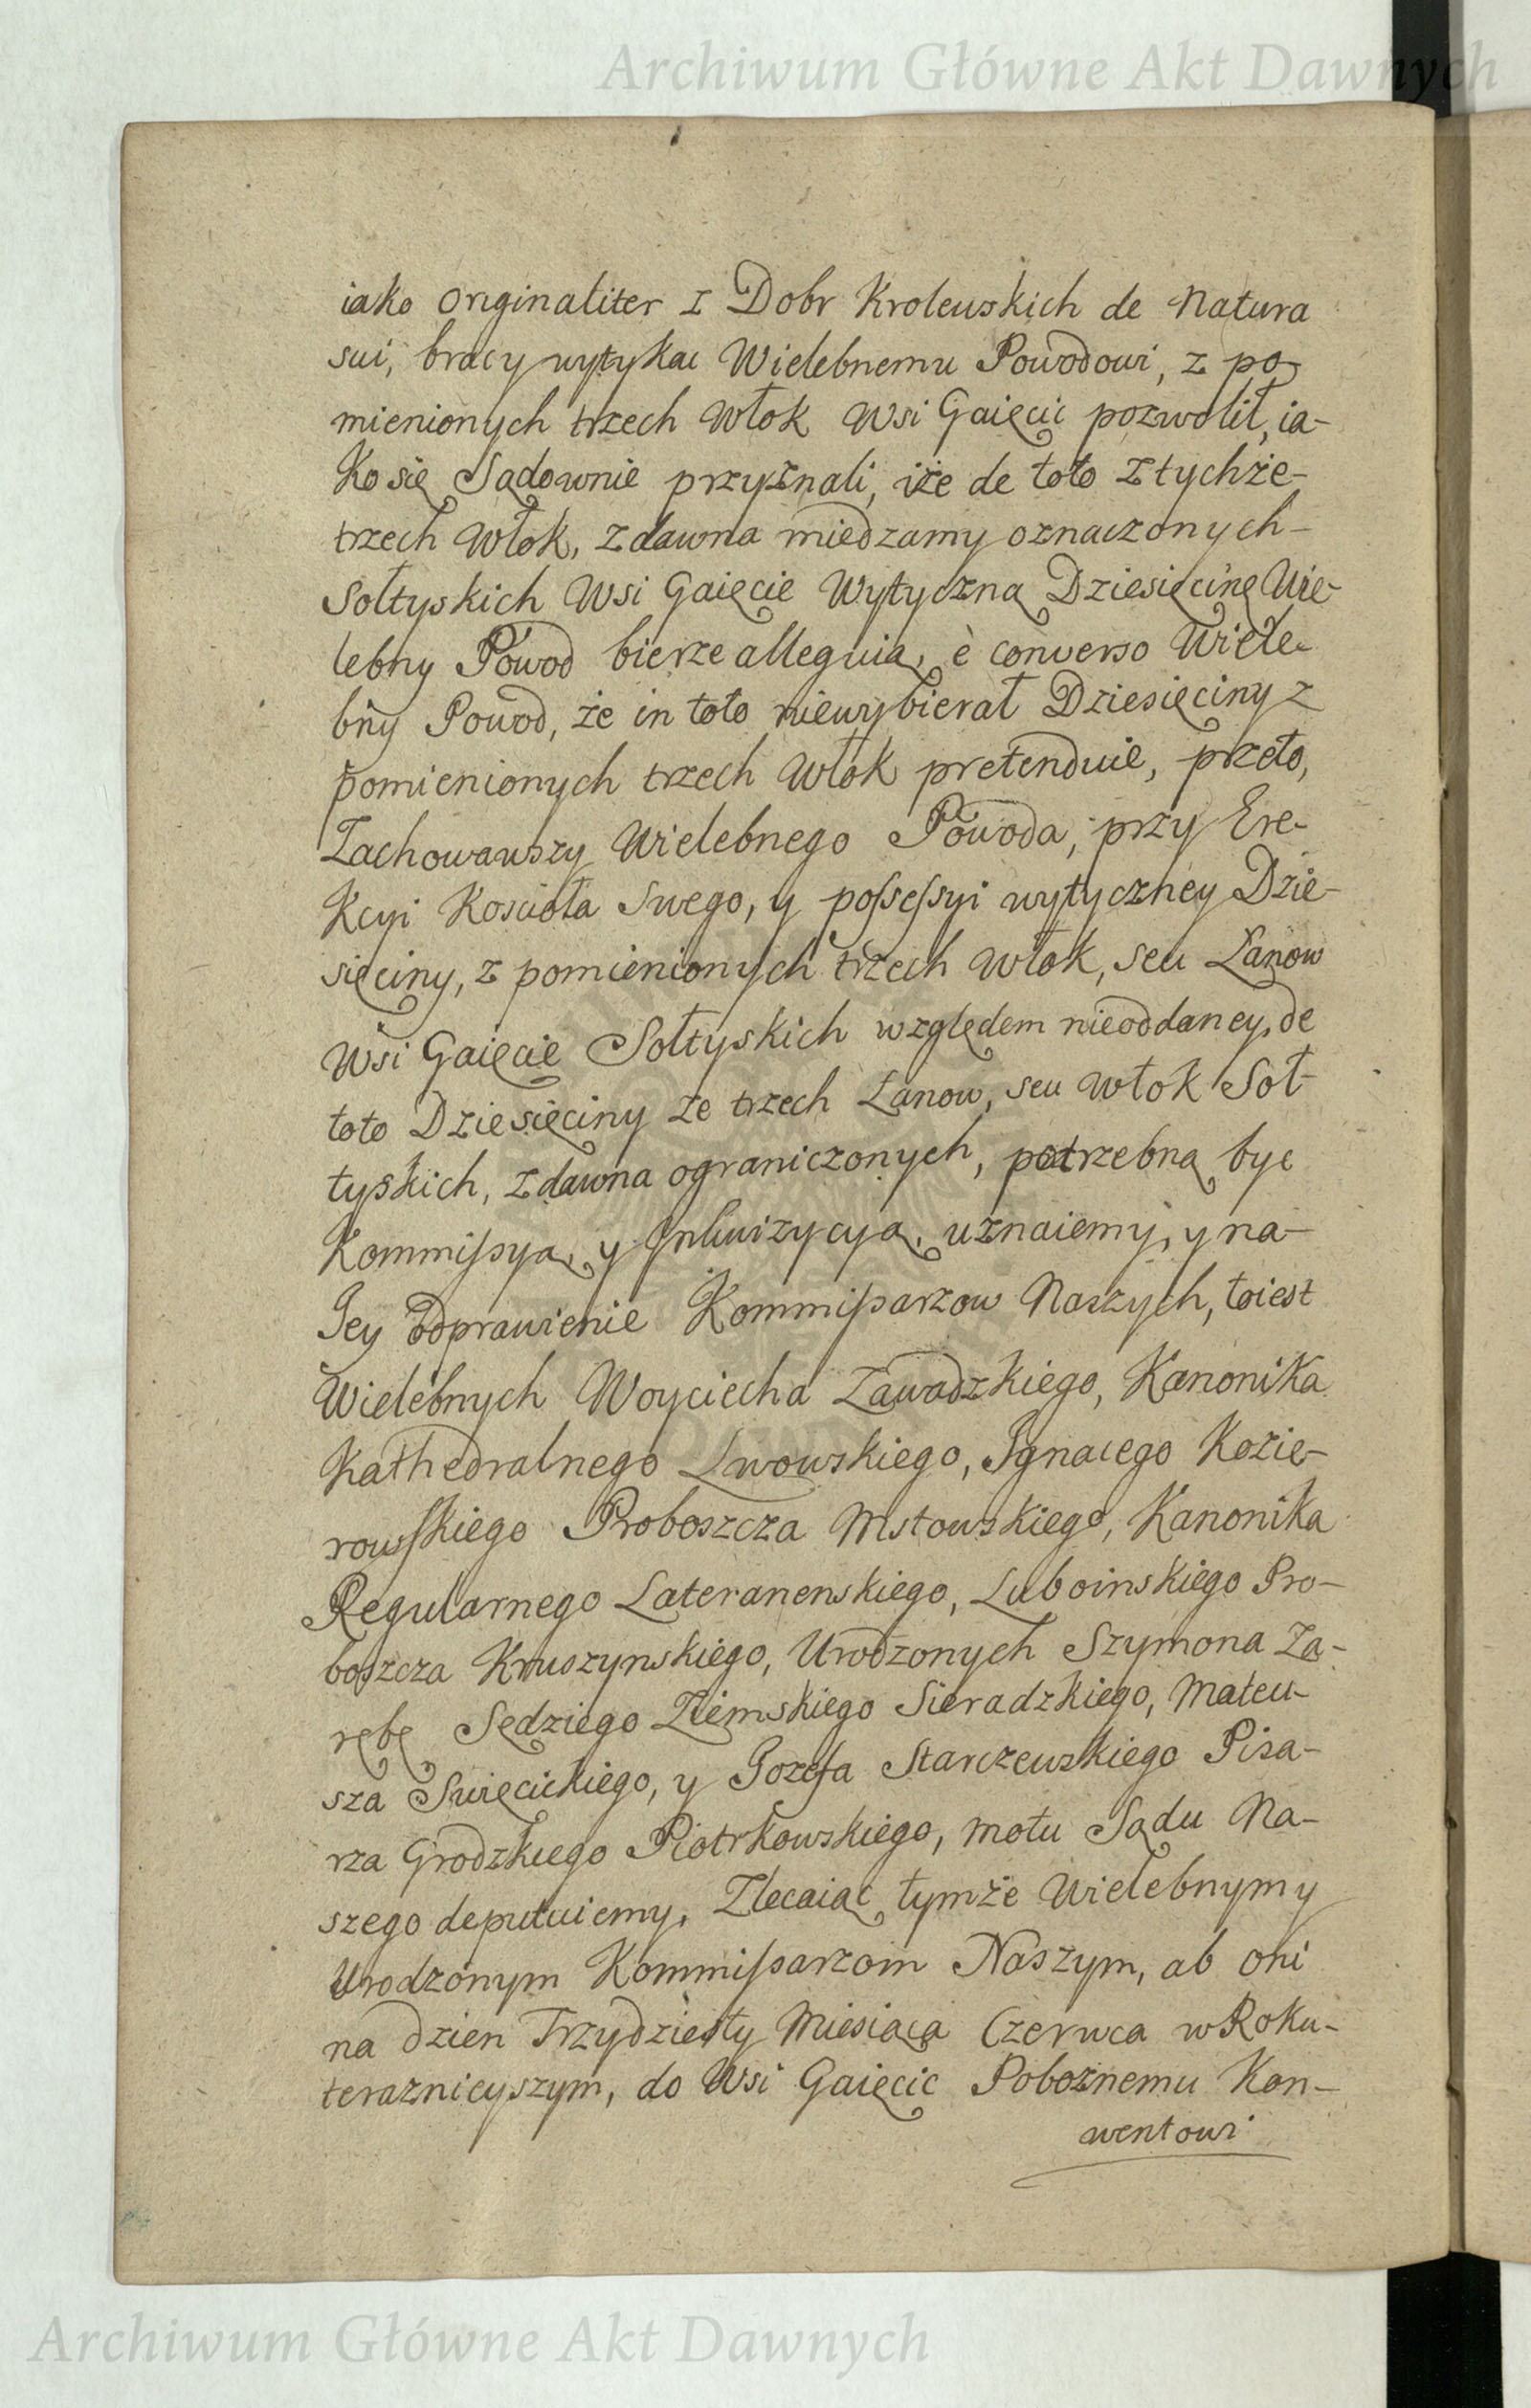 Archiwum Główne Akt Dawnych
iako originaliter z Dobr Krolewskich de Natura
sui, bracy wytykac Wielebnemu Powodowi, z po-
mienionych trzech Włok Wsi Gaięcic pozwolił, ia-
ko się Sądownie przyznali, iże de toto z tychże-
trzech Włok, zdawna miedzamy oznaczonych-
Sołtyskich Wsi Gaięcie Wytyczną Dziesięcinę Wie-
lebny Powod bierze alleguią, è converso Wiele-
bny Powod, że in toto niewybierał Dziesięciny z
pomienionych trzech Włok pretenduie, przeto,
Zachowawszy Wielebnego Powoda, przy Ere-
kcyi Kościoła Swego, y possessyi wytyczney Dzie-
sięciny, z pomienionych trzech Włok, seu Łanow
Wsi Gaięcie Sołtyskich względem nieoddaney, de
toto Dziesięciny ze trzech Łanow, seu Włok Soł-
tyskich, zdawna ograniczonych, potrzebną byc
Kommissyą, y Inkwizycyą, uznaiemy, y na-
Jey odprawienie Kommissarzow Naszych, toiest
Wielebnych Woyciecha Zawadzkiego, Kanonika
Kathedralnego Lwowskiego, Ignacego Kozie-
rowskiego Proboszcza Mstowskiego, Kanonika
Regularnego Lateranenskiego, Luboinskiego Pro-
boszcza Kruszynskiego, Urodzonych Szymona Za-
rębę Sędziego Ziemskiego Sieradzkiego, Mateu-
sza Swięcickiego, y Jozefa Starczewskiego Pisa-
rza Grodzkiego Piotrkowskiego, motu Sądu Na-
szego deputuiemy, Zlecaiąc tymże Wielebnym y
Urodzonym Kommissarzom Naszym, ab oni
na dzien Trzydziesty Miesiąca Czerwca w Roku-
teraznieyszym, do Wsi Gaięcic Pobożnemu Kon-
wentowi
Archiwum Główne Akt Dawnych